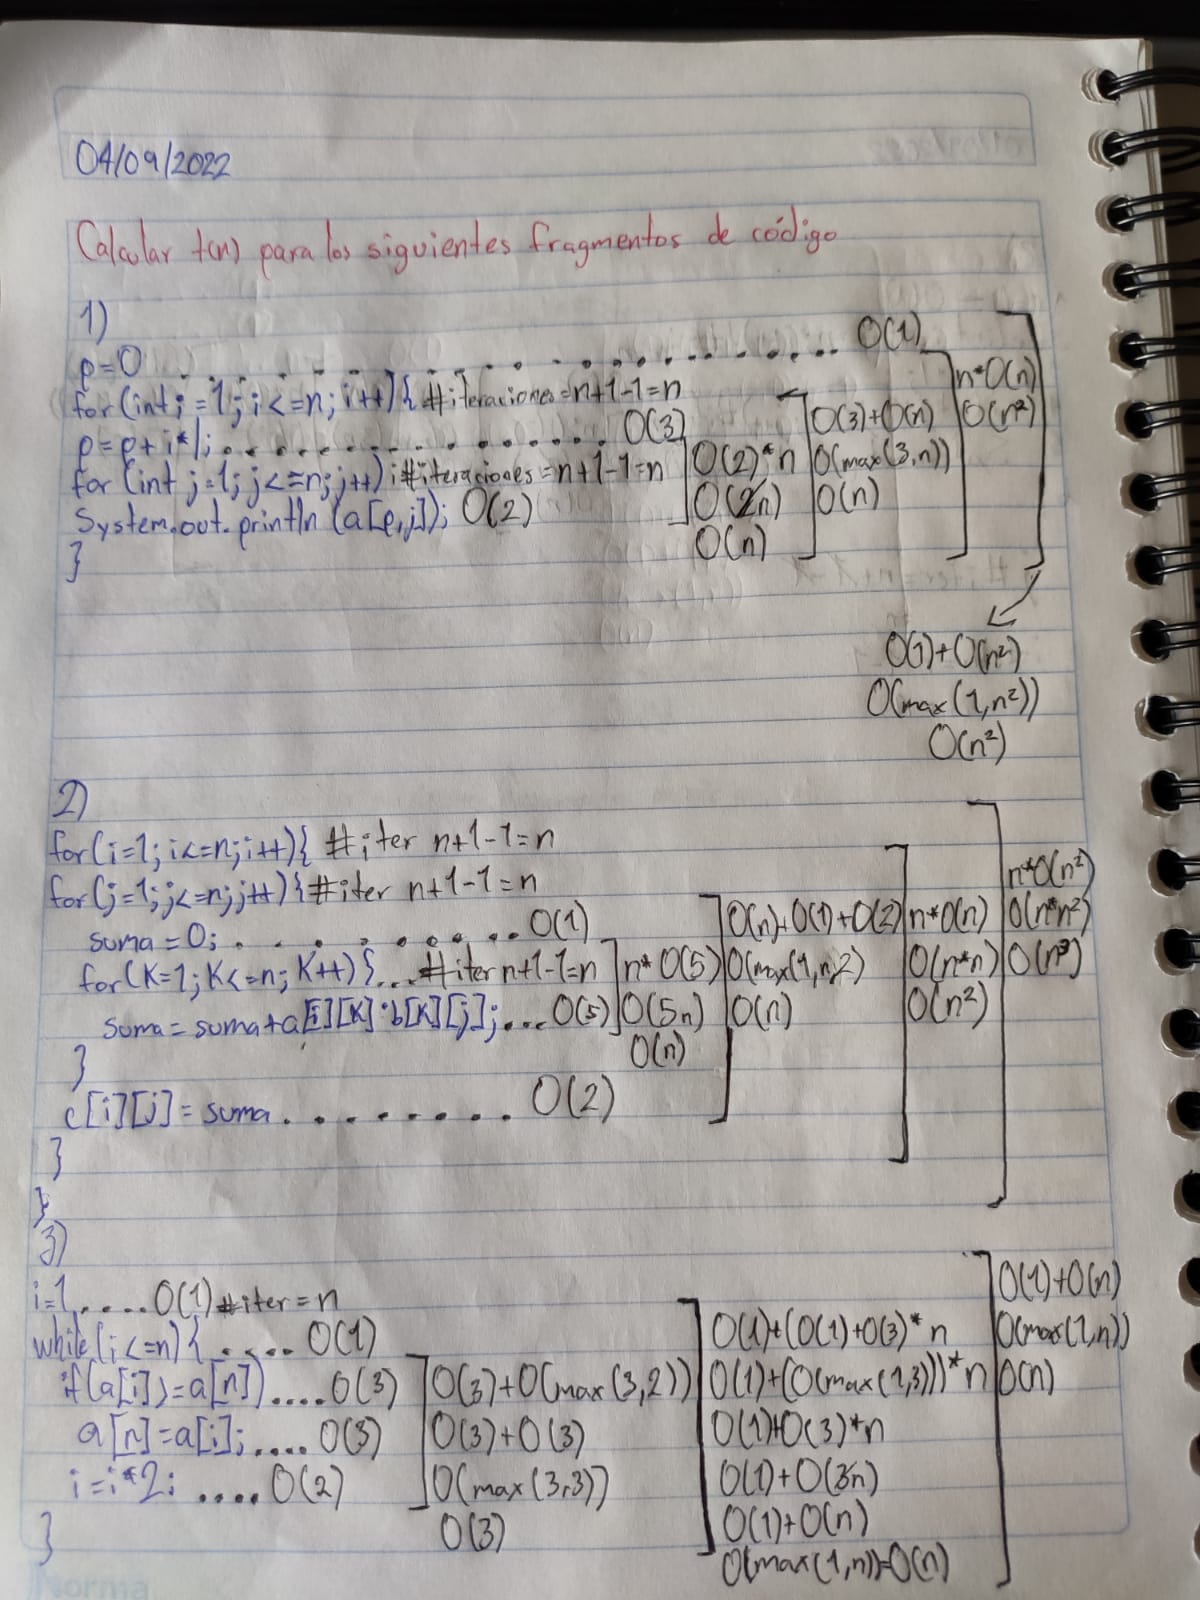 04/09/2022
Calcular t(n) para los siguientes fragmentos de código
1)
p=0 .................... O(1)
for(int i=1; i<=n; i++){ #iteraciones=n+1-1=n
p=p+i*j; .................. O(3)
for (int j=1; j<=n; j++) ; #iteraciones=n+1-1=n
System.out.println (a[p,j]); O(2)
}
O(2)*n
O(2n)
O(n)
O(3)+O(n)
O(max(3,n))
O(n)
n*O(n)
O(n²)
O(1)+O(n²)
O(max(1,n²))
O(n²)
2)
for(i=1; i<=n; i++){ #iter n+1-1=n
for(j=1; j<=n; j++){ #iter n+1-1=n
suma=0; ............ O(1)
for(K=1; K<=n; K++){... #iter n+1-1=n
suma=suma+a[i][K]*b[K][j];... O(5)
}
c[i][j]=suma ......... O(2)
}
}
n*O(5)
O(5n)
O(n)
O(n)+O(1)+O(2)
O(max(1,n,2)
O(n)
n*O(n)
O(n*n)
O(n²)
n*O(n²)
O(n*n²)
O(n³)
3)
i=1 ..... O(1) #iter=n
while(i<=n){ ..... O(1)
if(a[i]>=a[n]) ..... O(3)
a[n]=a[i]; .... O(3)
i=i*2; .... O(2)
}
O(3)+O(max(3,2))
O(3)+O(3)
O(max(3,3))
O(3)
O(1)+(O(1)+O(3)*n
O(1)+(O(max(1,3)))*n
O(1)+O(3)*n
O(1)+O(3n)
O(1)+O(n)
O(max(1,n))=O(n)
O(1)+O(n)
O(max(1,n))
O(n)
Norma